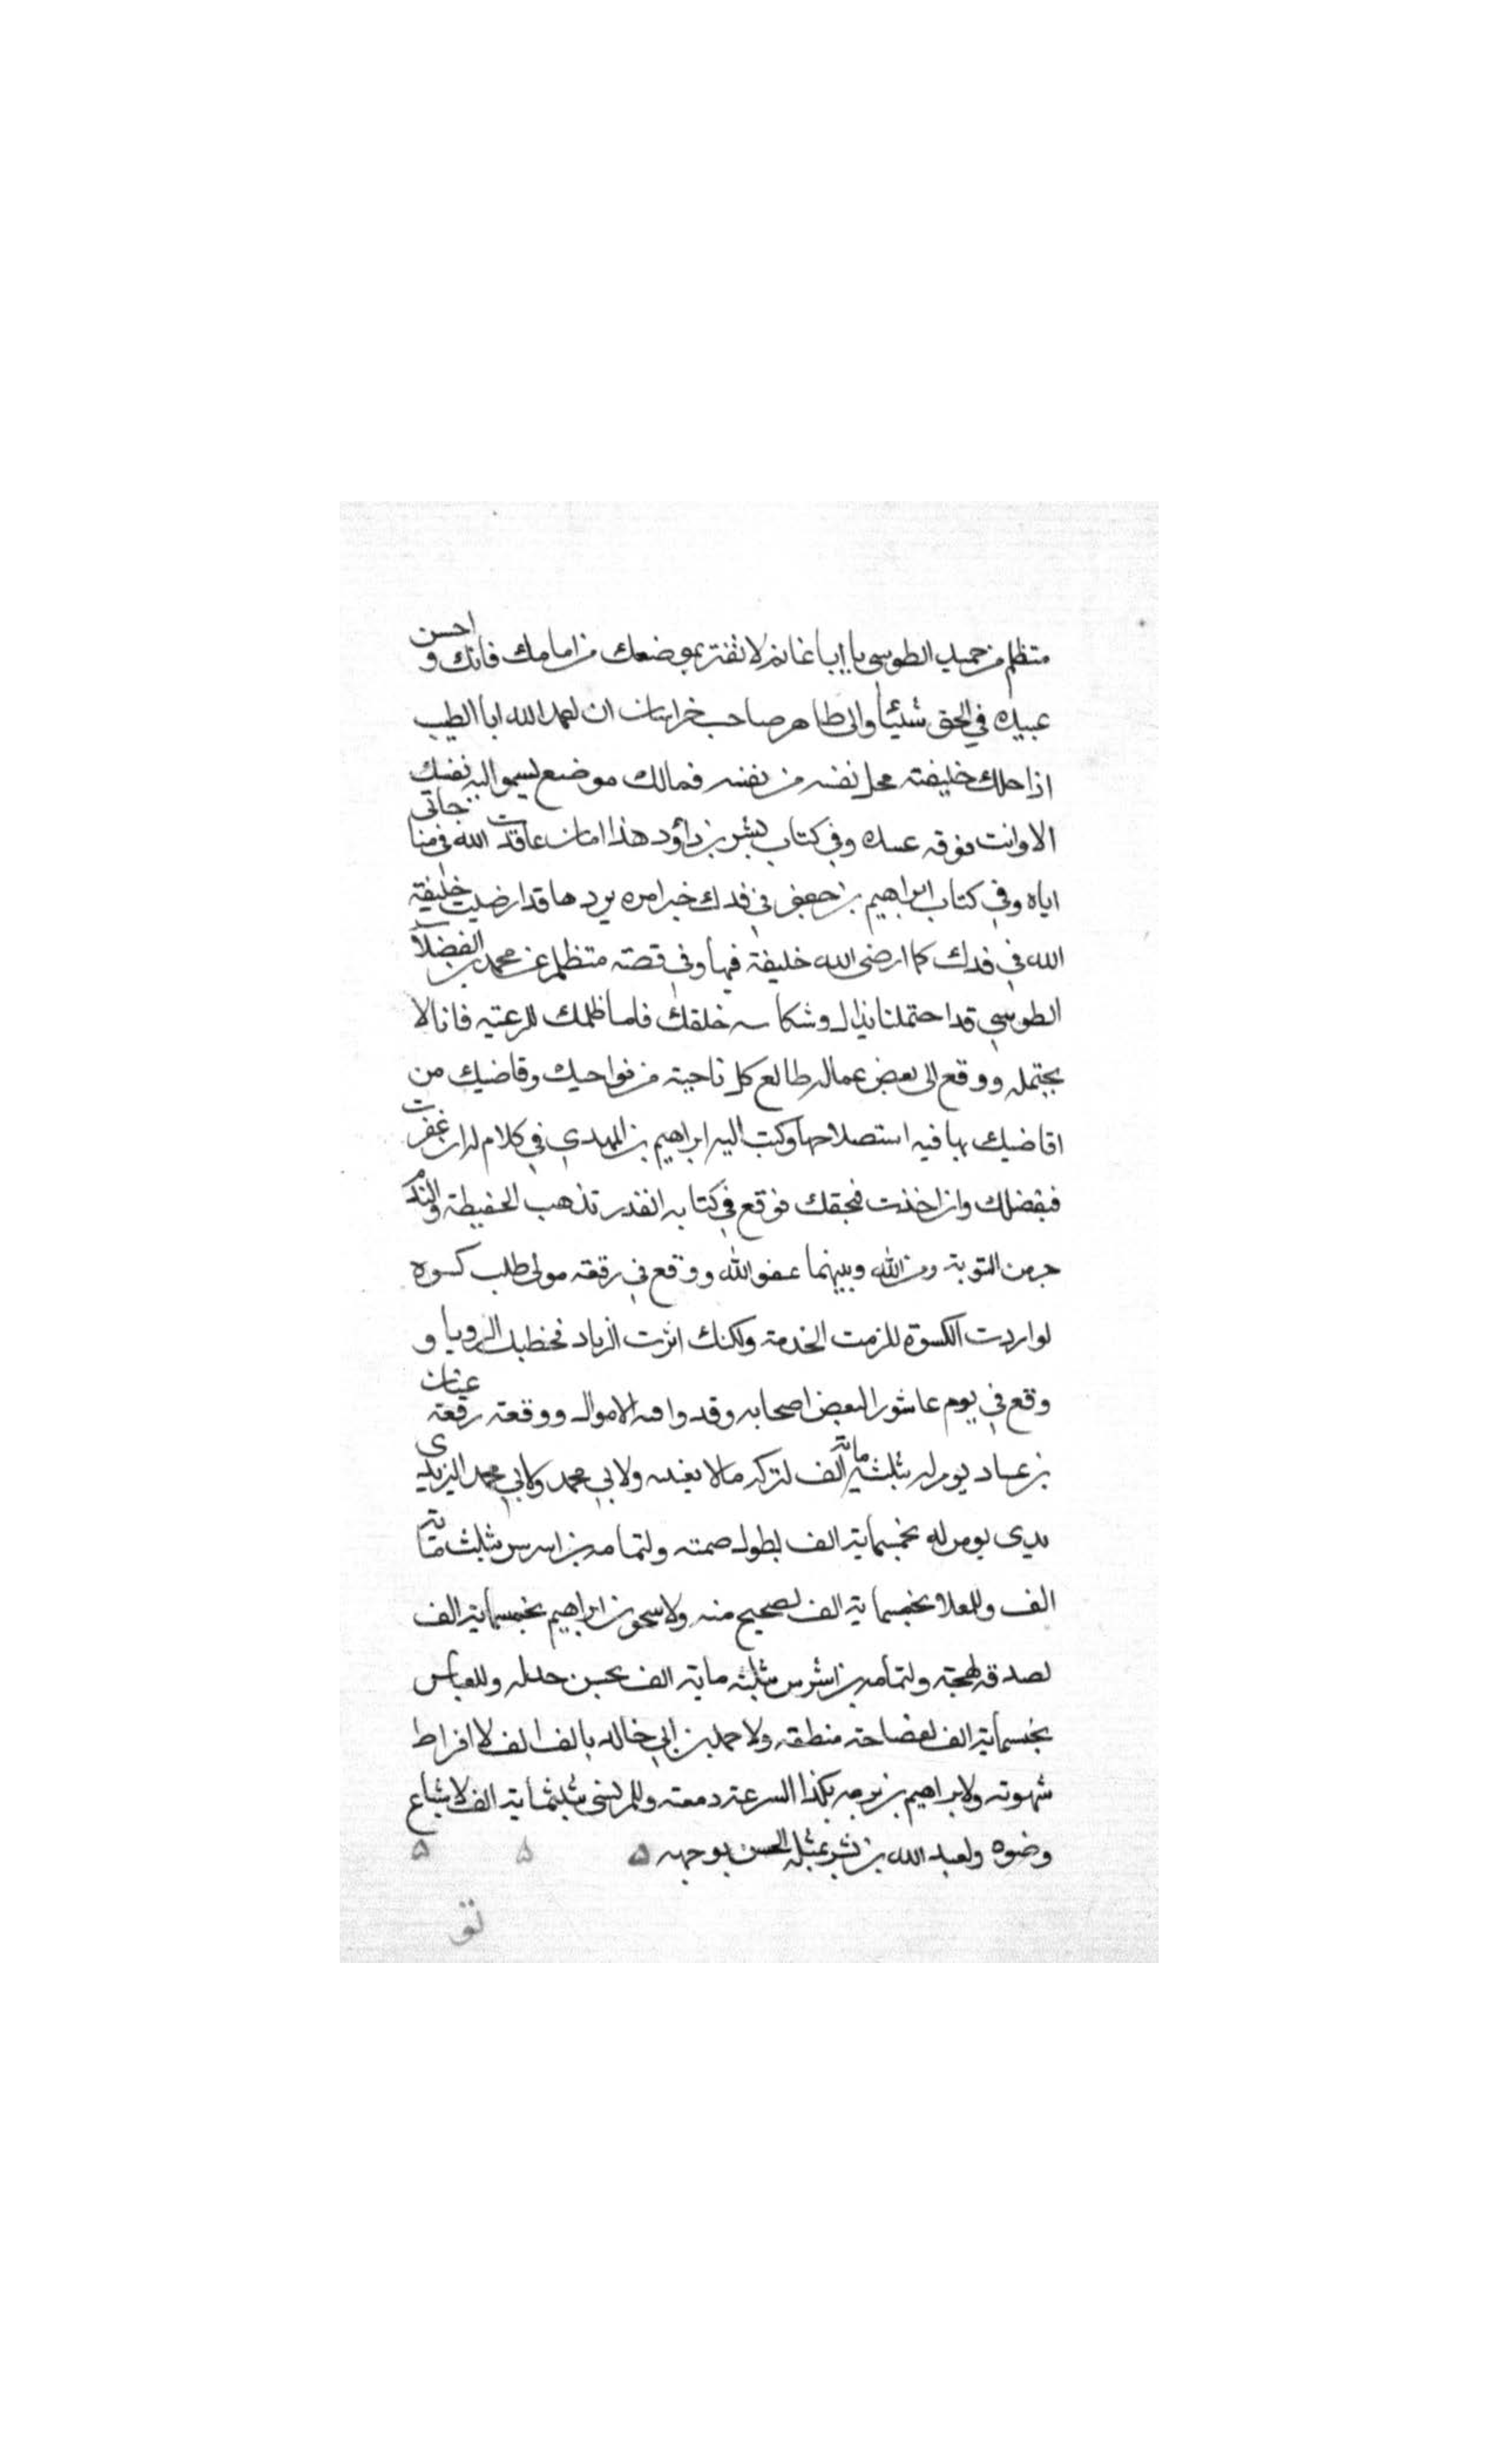 متظلم من حميد الطوسي يا ابا غانم لا تغتر بموضعك من امامك فانك و احسن
عبيده في الحق شيئا والى طاهر صاحب خراسان ان احمد الله ابا الطيب
اذ احلك خليفته محل نفسه من نفسه فمالك موضع يسموا اليه نفسك
الا وانت فوقه عنده وفي كتاب بشر بن داؤد هذا امان عاقدت الله في مناجاتي
اياه وفي كتاب ابراهيم بن جعفر في فدك خبر امره بردها قد ارضيت خليفة
الله في فدك كما ارضى الله خليفة فيها وفي قصة متظلم عن محمد بن الفضل
الطوسي قد احتملنا بذا لـ وشكاسه خلقك فاما ظلمك للرعيه فانا لا
يحتمله ووقع الى بعض عماله طالع كل ناحية من نواحيك وقاضيك من
اقاضيك بها فيه استصلاحها وكتب اليه ابراهيم بن المهدي في كلام له ان غفرت
فبفضلك وان اخذت فبحقك فوقع في كتابه القدر تذهب الحفيظة والندم
جر من التوبة ومن الله وبينهما عفو الله ووقع في رقعة مولى طلب كسوه
لو اردت الكسوة للزمت الخدمة ولكنك اثرت الرقاد فحظك الرويا و
وقع في يوم عاشورا لبعض اصحابه وقد وافه الاموال ووقعة رقعة عينان
بن عباد يومر له بثلثماية الف لتركه مالا يعنيه ولابي محمد ولابي محمد اليزيدي
يدى يومر له بخمسماية الف لطول صمته ولتمامه بن اسرس بثلث ماية
الف وللعلا بخمسماية الف لصحيح منه ولاسحق بن ابراهيم بخمسماية الف
لصدق لهجته ولتمامه بن اشرس بثلثه ماية الف بحسن حدله وللعباس
بخمسماية الف لفصاحة منطقه ولاحمد بن ابي خالد بالف الف لافراط
شهوته ولابراهيم بن بوبه بكذا السرعة دمعته وللمريسى بثلثماية الف لاشباع
وضوه ولعبد الله بن بشر بمثله لحسن بوجهه ۵ ۵ ۵
تو